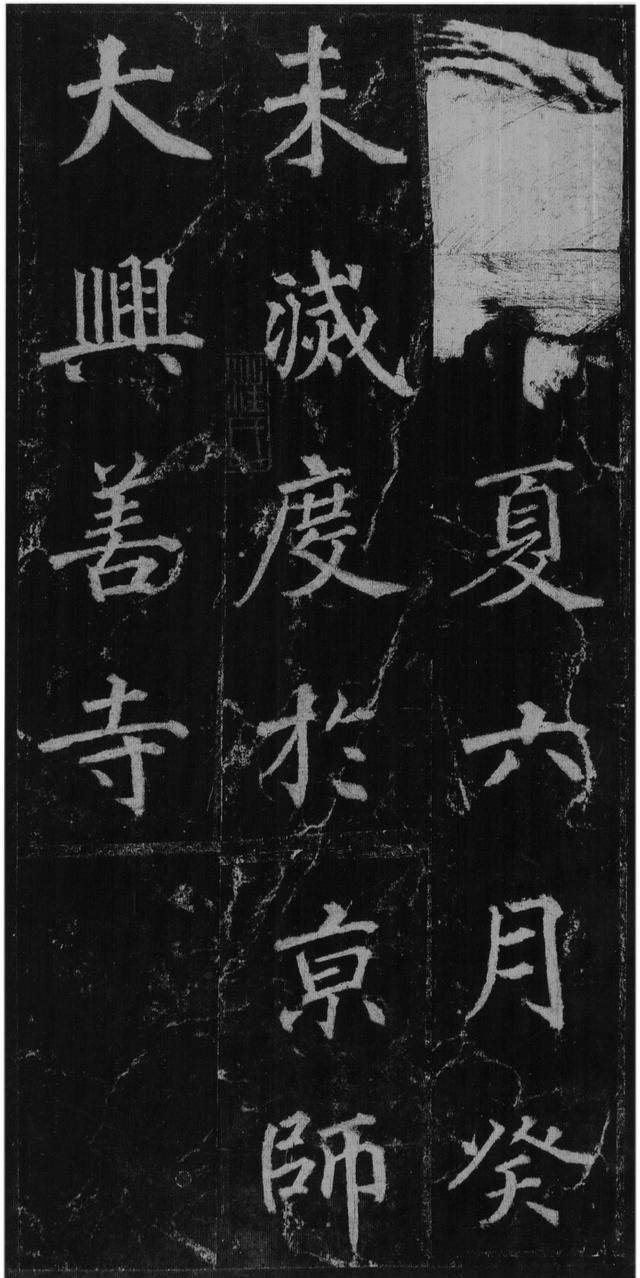 夏六月癸
未滅度於京師
大興善寺